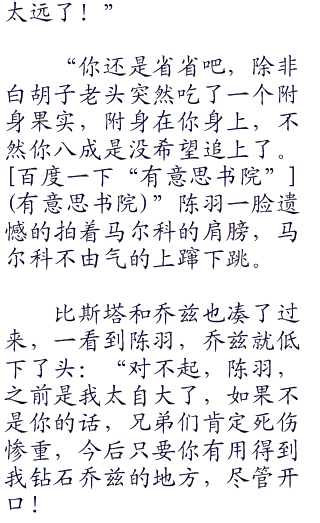 太远了！”
“你还是省省吧，除非
白胡子老头突然吃了一个附
身果实，附身在你身上，不
然你八成是没希望追上了。
[百度一下“有意思书院”]
(有意思书院)”陈羽一脸遗
憾的拍着马尔科的肩膀，马
尔科不由气的上蹿下跳。
比斯塔和乔兹也凑了过
来，一看到陈羽，乔兹就低
下了头：“对不起，陈羽，
之前是我太自大了，如果不
是你的话，兄弟们肯定死伤
惨重，今后只要你有用得到
我钻石乔兹的地方，尽管开
口！